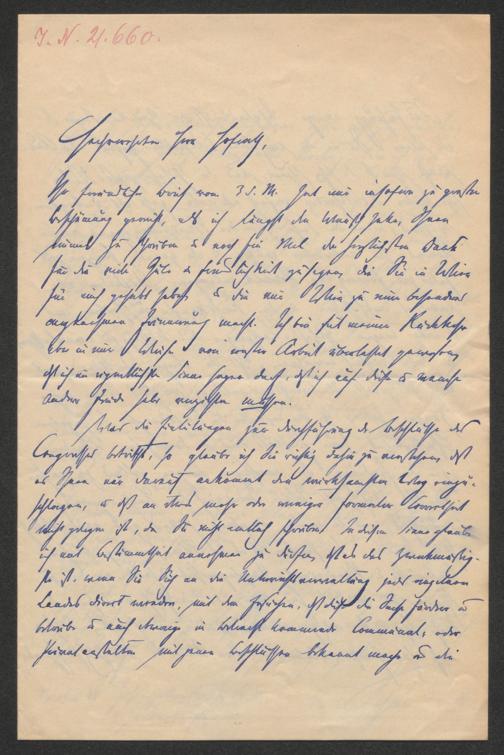 I. N. 21.660.
Hochverehrter Herr Hofrath,
Ihr freundlicher Brief vom 3 d. M. hat mir insofern zu großer
Beschämung gereicht, als ich längst den Wunsch habe, Ihnen
einmal zu schreiben u noch für Viel den herzlichsten Dank
für die viele Güte u Freundlichkeit zu sagen, die Sie in Wien
für mich gehabt haben u die mir Wien zu einer besonders
angenehmen Erinnerung macht. Ich bin seit meiner Rückkehr
aber in einer Weise von Arbeit überlastet gewesen,
daß ich im eigentlichsten Sinne sagen darf, daß ich auf diese u manche
andere Freude habe verzichten müssen.
Was die Einleitungen zur Durchführung der Beschlüsse des
Congresses betrifft, so glaube ich Sie richtig dahin zu verstehen, daß
es Ihnen nur darauf ankommt den wirksamsten Weg einzu-
schlagen, u daß an etwas mehr oder weniger formeller Correctheit
nicht gelegen ist, da Sie nicht amtlich schreiben. In diesem Sinne glaube
ich mit Bestimmtheit annehmen zu dürfen, daß es das Zweckmäßig-
ste ist, wenn Sie Sich an die Unterrichtsverwaltung jedes einzelnen
Landes direct wenden, mit dem Ersuchen, daß diese die Sache fördere u
betreibe u auch etwaige in Betracht kommende Communal- oder
Privatanstalten mit jenen Beschlüssen bekannt mache u die